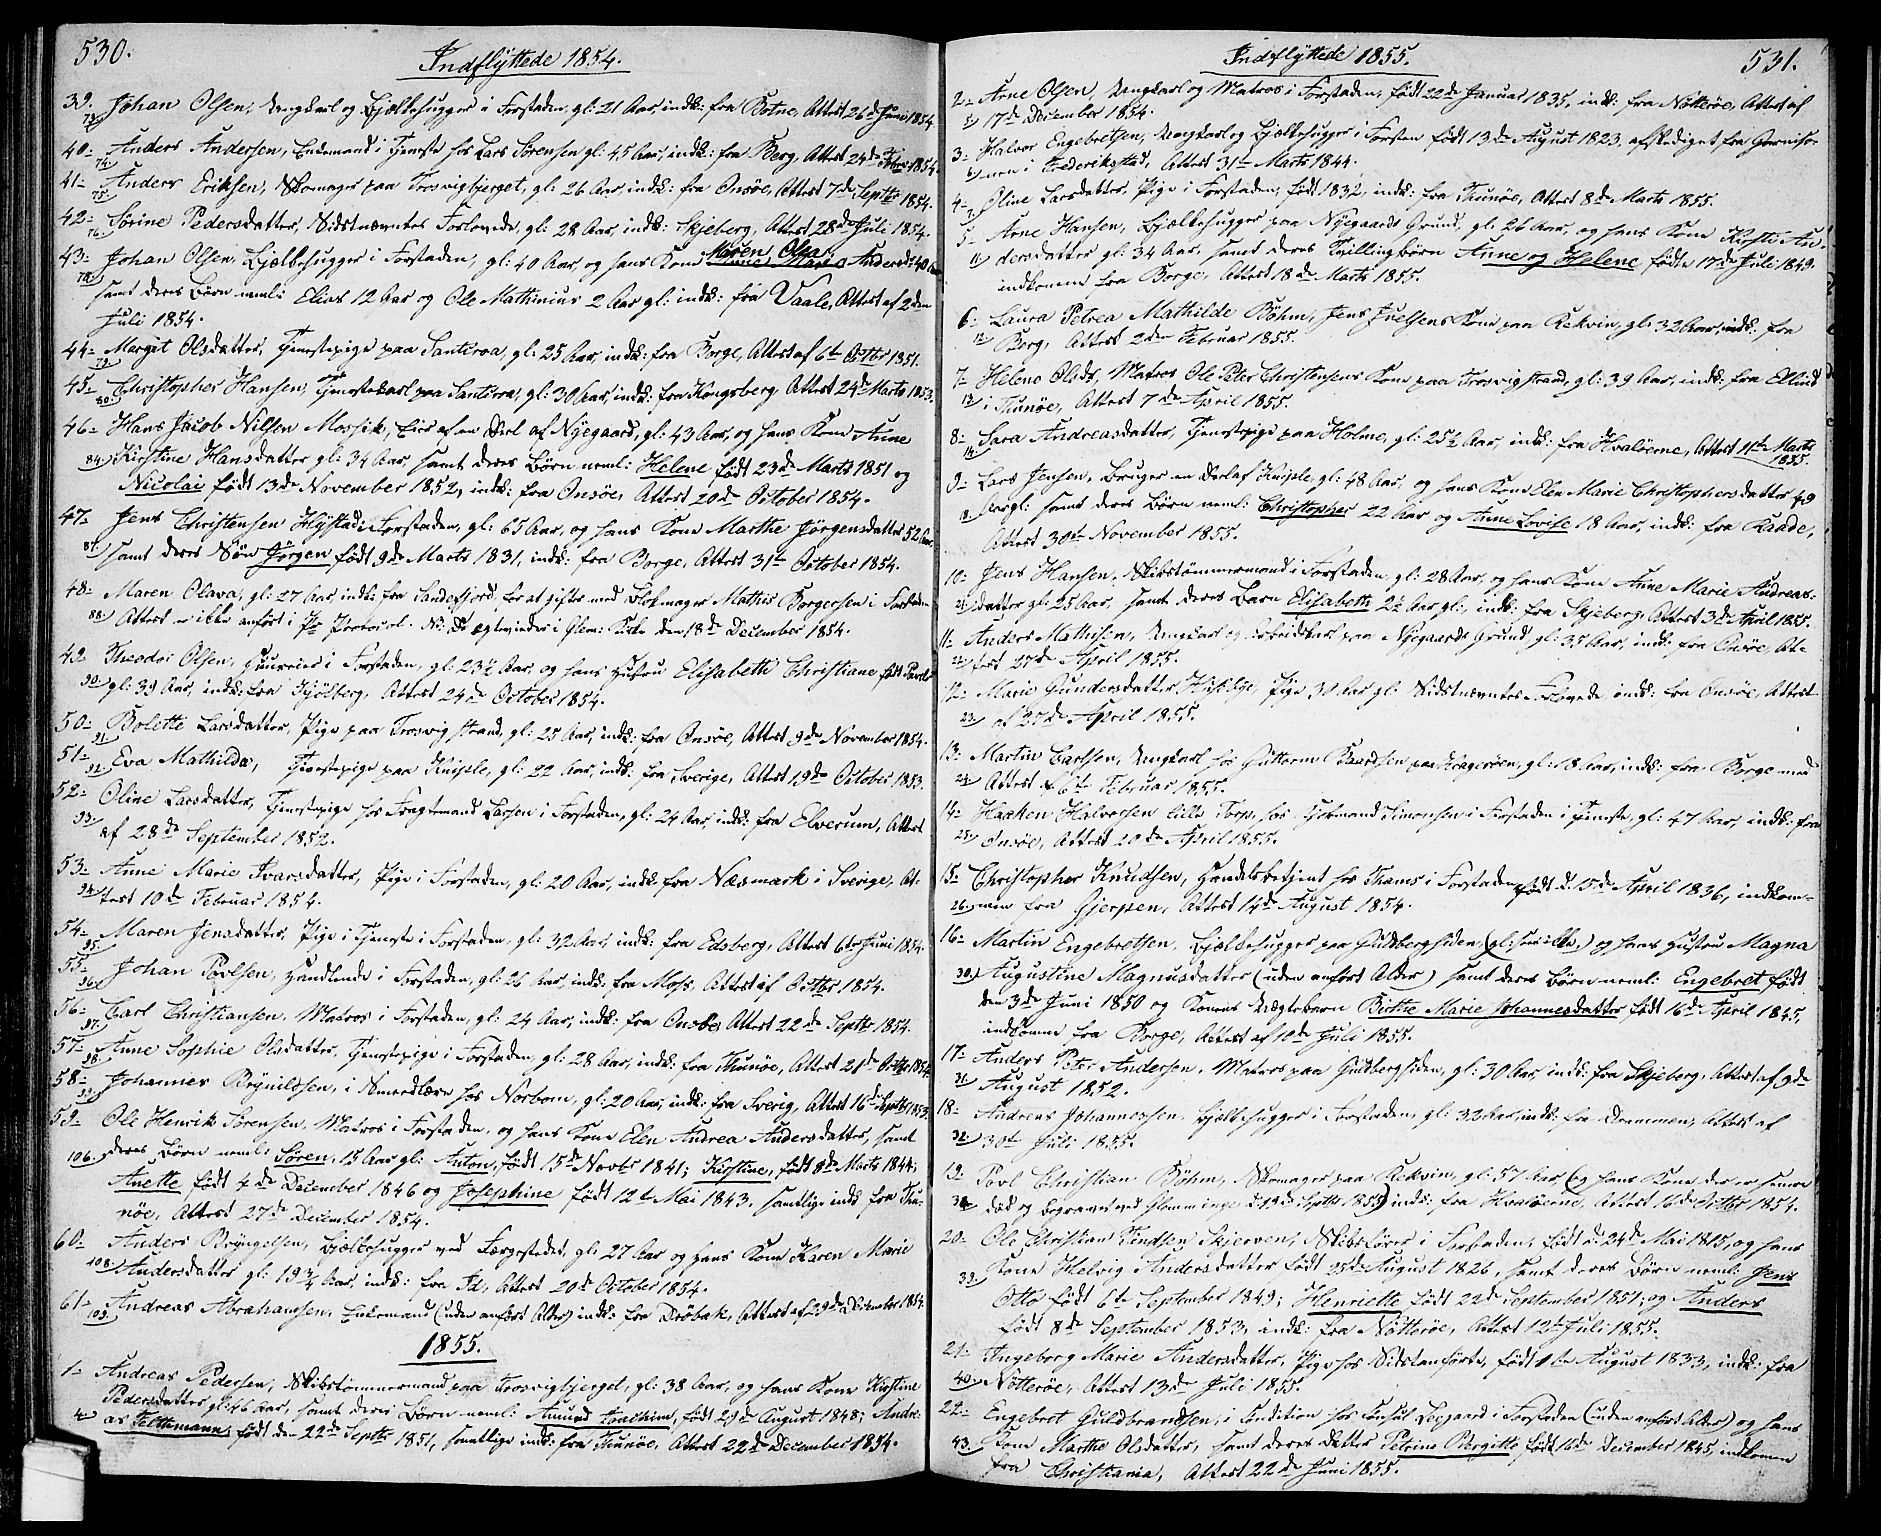 530.
Indflÿttede 1854.
39. Johan Olsen, Ungkarl og Bjælkehugger i Forstaden, gl: 21 Aar, indk: fra Botne, Attest 26de Juni 1854.
73)
40- Anders Andersen, Enkemand i Tjeneste hos Lars Sørensen gl: 45 Aar, indk: fra Berg, Attest 24de 1854.
74.
41- Anders Eriksen, Skomager paa Trosvigbjerget, gl: 26 Aar, indk: fra Onsøe, Attest 7de Septbr 1854.
75)
42- Sørine Pedersdatter, Sidstnævntes Forlovede, gl: 28 Aar, indk: Skjeberg, Attest 28de Juli 1854.
76.
43- Johan Olsen, Bjælkehugger i Forstaden, gl: 40 Aar, og hans Kone Maren Olsd.
78) samt deres Børn neml: Elias 12 Aar og Ole Mathinius 2 Aar gl: indk: fra Vaale, Attest af 2den
Juli 1854.
44- Margit Olsdatter, Tjenestepige paa Santeroa, gl: 25 Aar, indk: fra Borge, Attest af 6te Octbr 1851.
79.
45- Christopher Hansen, Tjenestekarl paa Santeroa, gl: 30 Aar, indk: fra Kongsberg Attest 24de Marts 1853.
80)
46- Hans Jacob Nilsen Mossik, Eier af en Deel af Nÿegaard, gl: 43 Aar, og hans Kone Anne
84. Kirstine Hansdatter gl: 34 Aar, samt deres Børn neml: Helene født 23de Marts 1851 og
Nicolai, født 13de November 1852, indk: fra Onsøe, Attest 20de October 1854.
47- Jens Christensen Hÿstad i Forstaden, gl: 65 Aar, og hans Kone Marthe Jørgensdatter 52 Aar
87. samt deres Søn Jørgen født 9de Marts 1831, indk: fra Borge, Attest 31te October 1854.
48- Maren Olava, gl: 27 Aar indk: fra Sandefjord, for at giftes med Blokmager Mathis Borgersen i Forstaden
88. Attest - ikke anført i Protocol. Ægtevieder i Glem: Kirke den 18de December 1854.
49- Theodor Olsen, i Forstaden, gl: 23½ Aar, og hans Hustru Elisabeth Christiane født
90. gl: 39 Aar, indk: fra Kjølberg, Attest 24de October 1854.
50- Bolette Larsdatter, Pige paa Trosvig strand, gl: 25 Aar, indk: fra Onsøe, Attest 9de November 1854.
91.
51- Eva Mathilda, Tjenestepige paa Knipле, gl: 22 Aar, indk: fra Sverige, Attest 19de October 1853.
92.
52- Oline Larsdatter, Tjenestepige hos Fragtmand Larsen i Forstaden, gl: 24 Aar, indk: fra Elverum, Attest
93) af 28de September 1852.
53- Anne Marie Ivarsdatter, Pige i Forstaden, gl: 20 Aar, indk: fra Næsmark i Sverige, At-
94. test 10de Februar 1854.
54- Maren Jensdatter, Pige i Tjeneste i Forstaden, gl: 32 Aar, indk: fra Edsberg, Attest 6te Juni 1854.
95.
55- Johan Povlsen, Handlende i Forstaden, gl: 26 Aar, indk: fra Moss, Attest af Octbr 1854.
96.
56- Carl Christiansen, Matros i Forstaden, gl: 24 Aar, indk: fra Onsøe, Attest 22de Septbr 1854.
97.
57- Anne Sophie Olsdatter, Tjenestepige i Forstaden, gl: 28 Aar, indk: fra Thunøe, Attest 21de Octbr 1854.
98.
58- Johannes Brÿnildsen, i Smedlære hos Norbom, gl: 20 Aar, indk: fra Sverig, Attest 16de Septbr 1853.
99.
59- Ole Henrik Sørensen, Matros i Forstaden, og hans Kone Elen Andrea Andersdatter, samt
106. deres Børn neml: Søren, 15 Aar gl: Anton, født 15de Novbr 1841; Kirstine, født 8de Marts 1844;
Anette født 4de December 1846 og Josephine født 12te Mai 1843, samtlige indk: fra Thu-
nøe, Attest 27de December 1854.
60- Anders Brÿngelsen, Bjælkehugger ved Færgestedet, gl: 27 Aar og hans Kone Karen Marie
108. Andersdatter gl: 19¾ Aar, indk: fra Id, Attest 20de October 1854.
61- Andreas Abrahamsen, Enkemand (uden anført Alder) indk: fra Drøbak, Attest af 29de December 1854.
109.
1855.
1- Andreas Pedersen, Skibstømmermand paa Trosvigbjerget, gl: 38 Aar, og hans Kone Kirstine
Pedersdatter gl: 46 Aar, samt deres Børn neml: Amund Joachim, født 29de August 1848; Andre-
4. as Felthemann, født den 22de Septbr 1851, samtlige indk: fra Thunøe, Attest 22de December 1854.
Indflÿttede 1855.
531.
2- Arne Olsen, Ungkarl og Matros i Forstaden, født 22de Januar 1835, indk: fra Nøtterøe, Attest af
5) 17de December 1854.
3- Halvor Engebretsen, Ungkarl og Bjælkehugger i Forsten født 13de August 1823, afskediget fra Garniso-
6) nen i Frederikstad, Attest 31te Marts 1844.
4- Oline Larsdatter, Pige i Forstaden, født 1832, indk: fra Thunøe, Attest 8de Marts 1855.
7.
5- Arne Hansen, Bjælkehugger paa Nÿegaards Grund, gl: 26 Aar, og hans Kone Kirsti An-
11) dersdatter gl: 34 Aar, samt deres Tvillingbørn Anne og Helene født 17de Juli 1849.
indkomne fra Borge, Attest 18de Marts 1855.
6- Laura Petrea Mathilde Bøhm, Jens Juelsens Kone paa Rekvin, gl: 32 Aar, indk: fra
12) Borg, Attest 2den Februar 1855.
7- Helene Olsdr, Matros Ole Peter Christensens Kone paa Trosvigstrand, gl: 39 Aar, indk: fra
13) i Thunøe, Attest 7de April 1855.
8- Sara Andreasdatter, Tjenestepige paa Holme, gl: 25½ Aar, indk: fra Hvaløerne, Attest 11te Marts
14. 1855.
9- Lars Jensen, Bruger en Deel af Knipле, gl: 48 Aar, og hans Kone Elen Marie Christophersdatter 49
18. Aar gl: samt deres Børn neml: Christopher 22 Aar og Anne Lovise 18 Aar, indk: fra Raade,
Attest 30te November 1855.
10- Jens Hansen, Skibstømmermand i Forstaden, gl: 28 Aar, og hans Kone Anne Marie Andreas-
21) datter gl: 25 Aar, samt deres Barn Elisabeth 2½ Aar gl:, indk: fra Skjeberg, Attest 3de April 1855.
11- Anders Mathisen, Ungkarl og Arbeidskarl paa Nÿegaards Grund gl: 35 Aar, indk: fra Onsøe, At-
22) test 27de April 1855.
12- Marie Gundersdatter Husebÿe, Pige 30 Aar gl: Sidstnævntes Forlovede indk: fra Onsøe, Attest
23) af 27de April 1855.
13- Martin Carlsen, Ungkarl hos Guttorm Baardsen paa Kragerøen, gl: 18 Aar, indk: fra Borge med
24) Attest af 6te Februar 1855.
14- Haaken Halvorsen lille Torp, hos Simonsen i Forstaden i Tjeneste, gl: 47 Aar, indk: fra
25) Onsøe, Attest 20de April 1855.
15- Christopher Knudsen, Handelsbetjent hos Thams i Forstaden, født d. 15de April 1836, indkom-
26. men fra Gjerpen, Attest 14de August 1854.
16- Martin Engebretsen, Bjælkehugger paa Guldbergsiden, og hans Hustru Magna
30) Augustine Magnusdatter (uden anført Alder) samt deres Børn neml: Engebret født
den 3de Juni 1850 og Konens Uægtebarn Birthe Marie Johannesdatter født 16de April 1845,
indkomne fra Borge, Attest af 10de Juli 1855.
17- Anders Peter Andersen, Matros paa Guldbergsiden, gl: 30 Aar, indk: fra Skjeberg, Attest af 9de
31) August 1852.
18- Andreas Johannessen, Bjælkehugger i Forstaden, gl: 32 Aar, indk: fra Drammen, Attest af
32) 30te Juli 1855.
19- Povl Christian Bøhm, Skomager paa Rekvin, gl: 57 Aar (og hans Kone, der er senere
34 død og begravet ved Glemminge d. 19de Septbr 1855) indk: fra Hvaløerne, Attest 16de Octbr 1854.
20- Ole Christian Findsen Skjerven, Skibsfører i Forstaden, født d. 24de Mai 1815, og hans
39) Kone Helvig Andersdatter født 25de August 1826, samt deres Børn neml: Jens
Otto født 6te September 1849; Henriette født 22de September 1851; og Anders
født 8de September 1853, indk: fra Nøtterøe, Attest 12te Juli 1855.
21- Ingeborg Marie Andersdatter, Pige hos Sidstanførte, født 1ste August 1833, indk: fra
40) Nøtterøe, Attest 13de Juli 1855.
22- Engebret Guldbrandsen, i Condition hos Consul Leegaard i Forstaden (uden anført Alder) og hans
43. Kone Marthe Olsdatter, samt deres Datter Petrine Bergitte født 16de December 1845, indkomne
fra Christiania, Attest 22de Juni 1855.